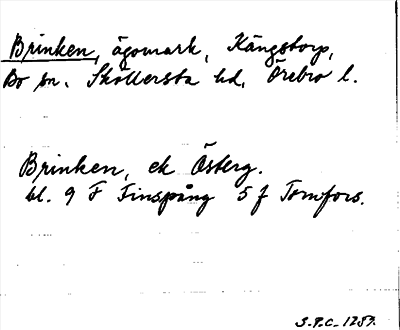 Brinken, ägomark, Kängstorp,
Bo sn. Sköllersta hd. Örebro l.
Brinken, ek Österg.
bl. 9 F Finspång 5 f Tomfors.
S.P.C. 1259.